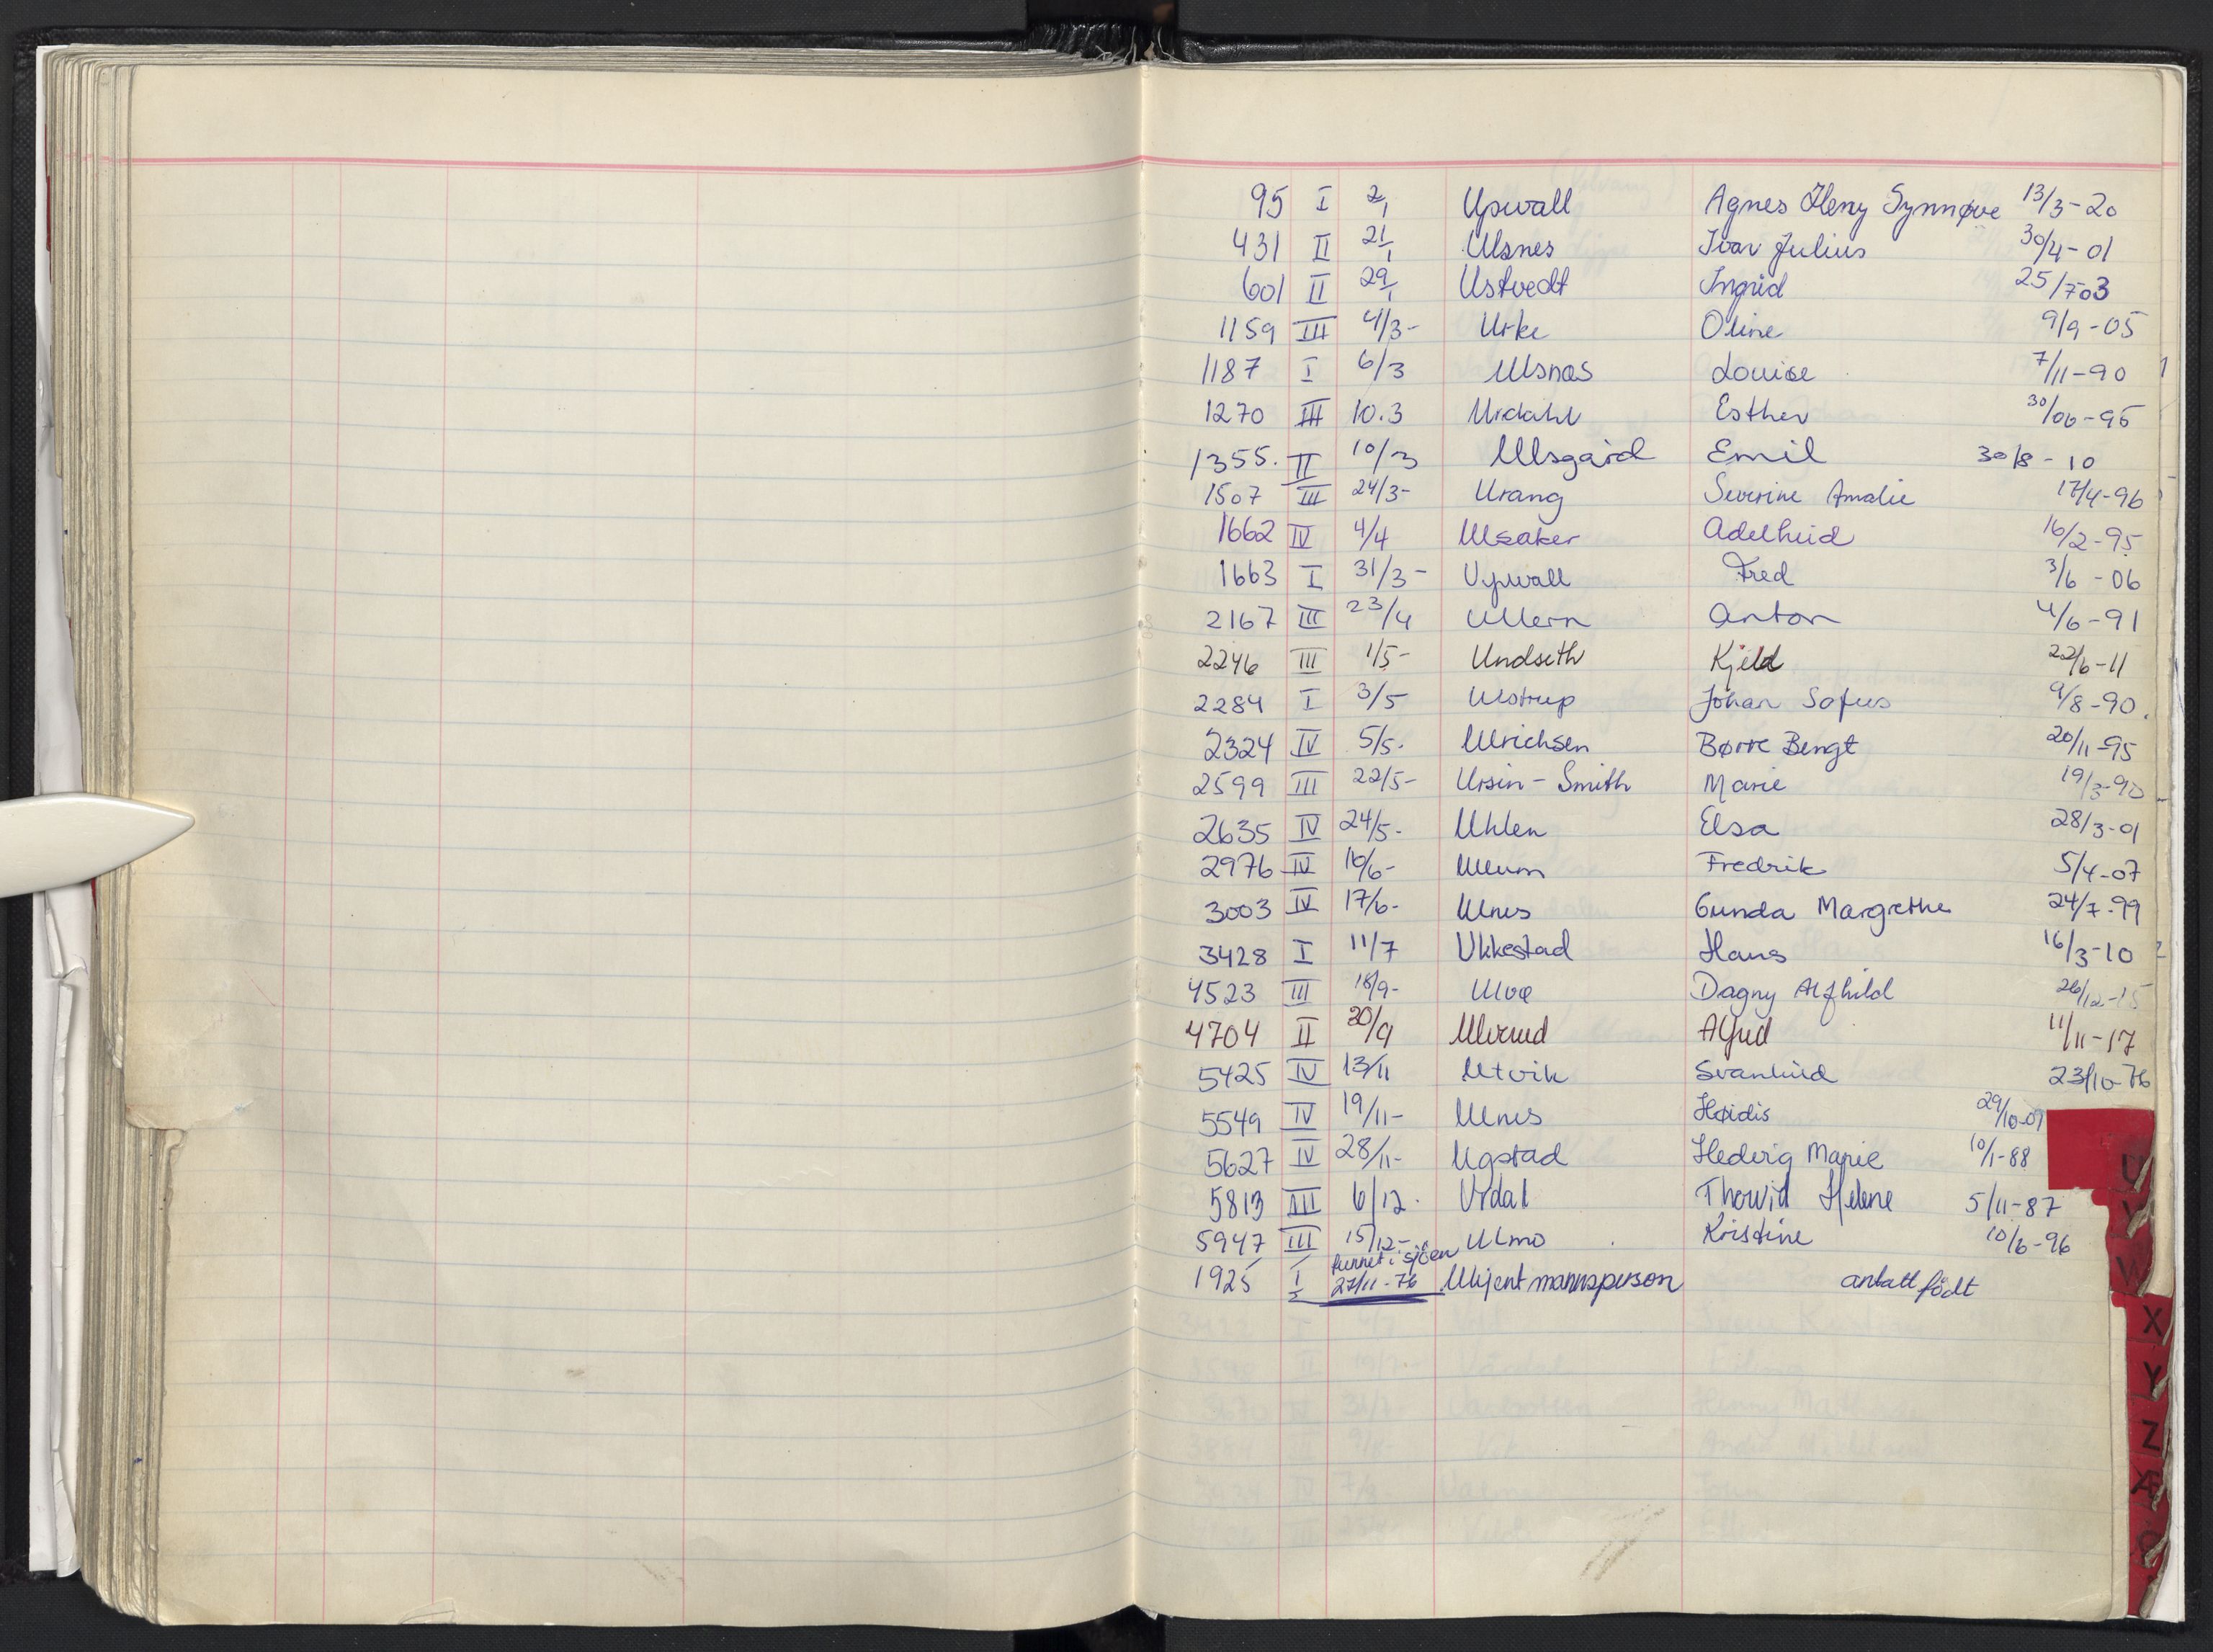 95 I 2/1 Upwall Agnes Henny Synnøve 13/3-20
431 II 21/1 Ulsnes Ivar Julius 30/4-01
601 II 29/1 Ustvedt Ingrid 25/7-03
1159 III 4/3- Urke Oline 9/9-05
1187 I 6/3 Ulsnæs Louise 7/11-90
1270 III 10.3 Urdahl Esther 30/06-95
1355. II 10/3 Ulsgård Emil 30/8-10
1507 III 24/3- Urang Severine Amalie 17/4-96
1662 IV 4/4 Ulsaker Adelheid 16/2-95
1663 I 31/3- Upwall Fred 3/6-06
2167 III 23/4 Ullern Anton 4/6-91
2246 III 1/5- Undseth Kjeld 22/6-11
2284 I 3/5 Ulstrup Johan Sofus 9/8-90.
2324 IV 5/5. Ulrichsen Børre Bengt 20/11-95
2599 III 22/5- Ursin-Smith Marie 19/3-90
2635 IV 24/5- Uhlen Elsa 28/3-01
2976 IV 16/6- Ullum Fredrik 5/4-07
3003 IV 17/6- Ulnes Gunda Margrethe 24/7-99
3428 I 11/7 Ukkestad Hans 16/3-10
4523 III 18/9- Ulvø Dagny Alfhild 26/12-15
4704 II 30/9 Ulverud Alfred 11/11-17
5425 IV 13/11 Utvik Svanhild 23/10-76
5549 IV 19/11- Ulnes Høidis 29/10-07
5627 IV 28/11- Ugstad Hedvig Marie 10/1-88
5813 III 6/12. Urdal Thorvid Helene 5/11-87
5947 III 15/12- Ulmo Kristine 10/6-96
funnet i sjøen
1925 I 27/11-76 Ukjent mannsperson antatt født
U
V
W
X
Y
Z
Æ
Ø